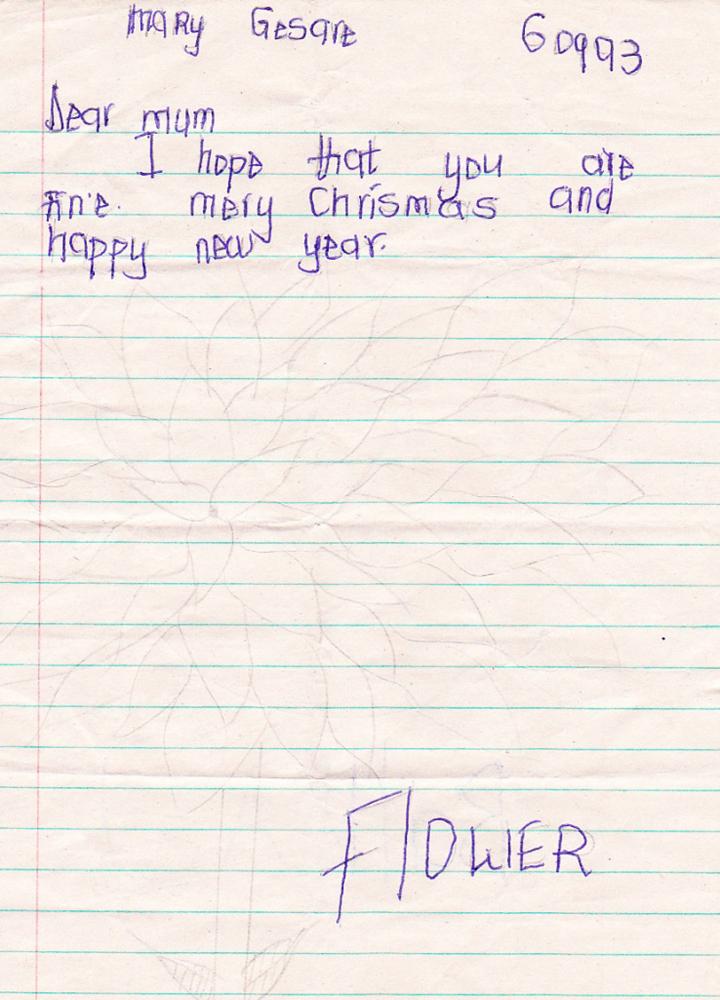 Mary Gesare 60993
Dear mum
I hope that you are
fine. mery Chrismas and
happy new year.
FlOWER